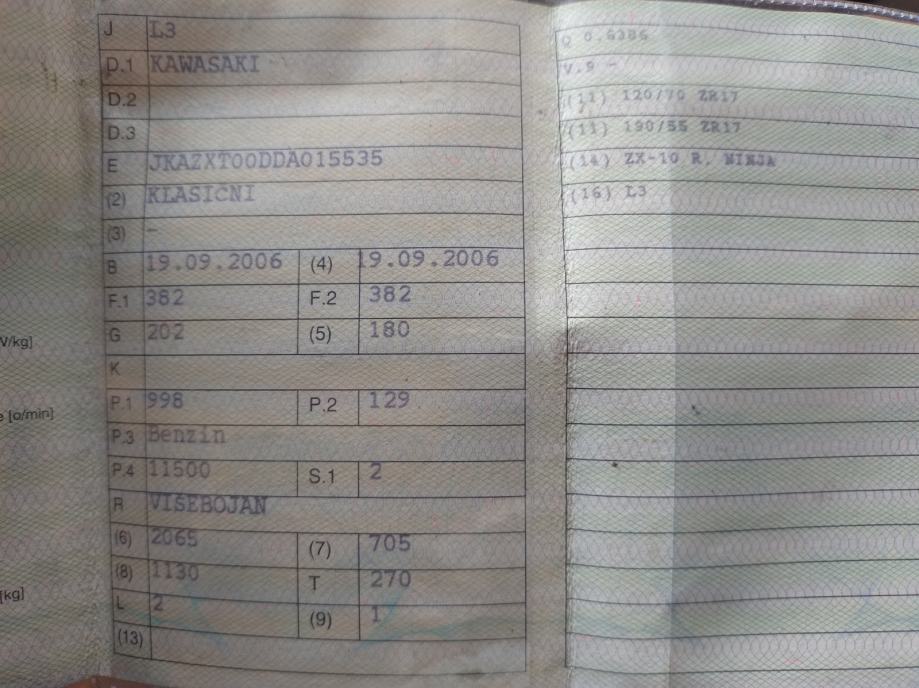 J L3
D.1 KAWASAKI
D.2
D.3
E JKAZXT00DDA015535
(2) KLASIČNI
(3) -
B 19.09.2006 (4) 19.09.2006
F.1 382 F.2 382
G 202 (5) 180
K
P.1 998 P.2 129
P.3 Benzin
P.4 11500 S.1 2
R VIŠEBOJAN
(6) 2065 (7) 705
(8) 1130 T 270
L 2 (9) 1
(13)
W/kg]
[o/min]
[kg]
Q 0.6386
V.9 -
(11) 120/70 ZR17
(11) 190/55 ZR17
(14) ZX-10 R, NINJA
(16) L3